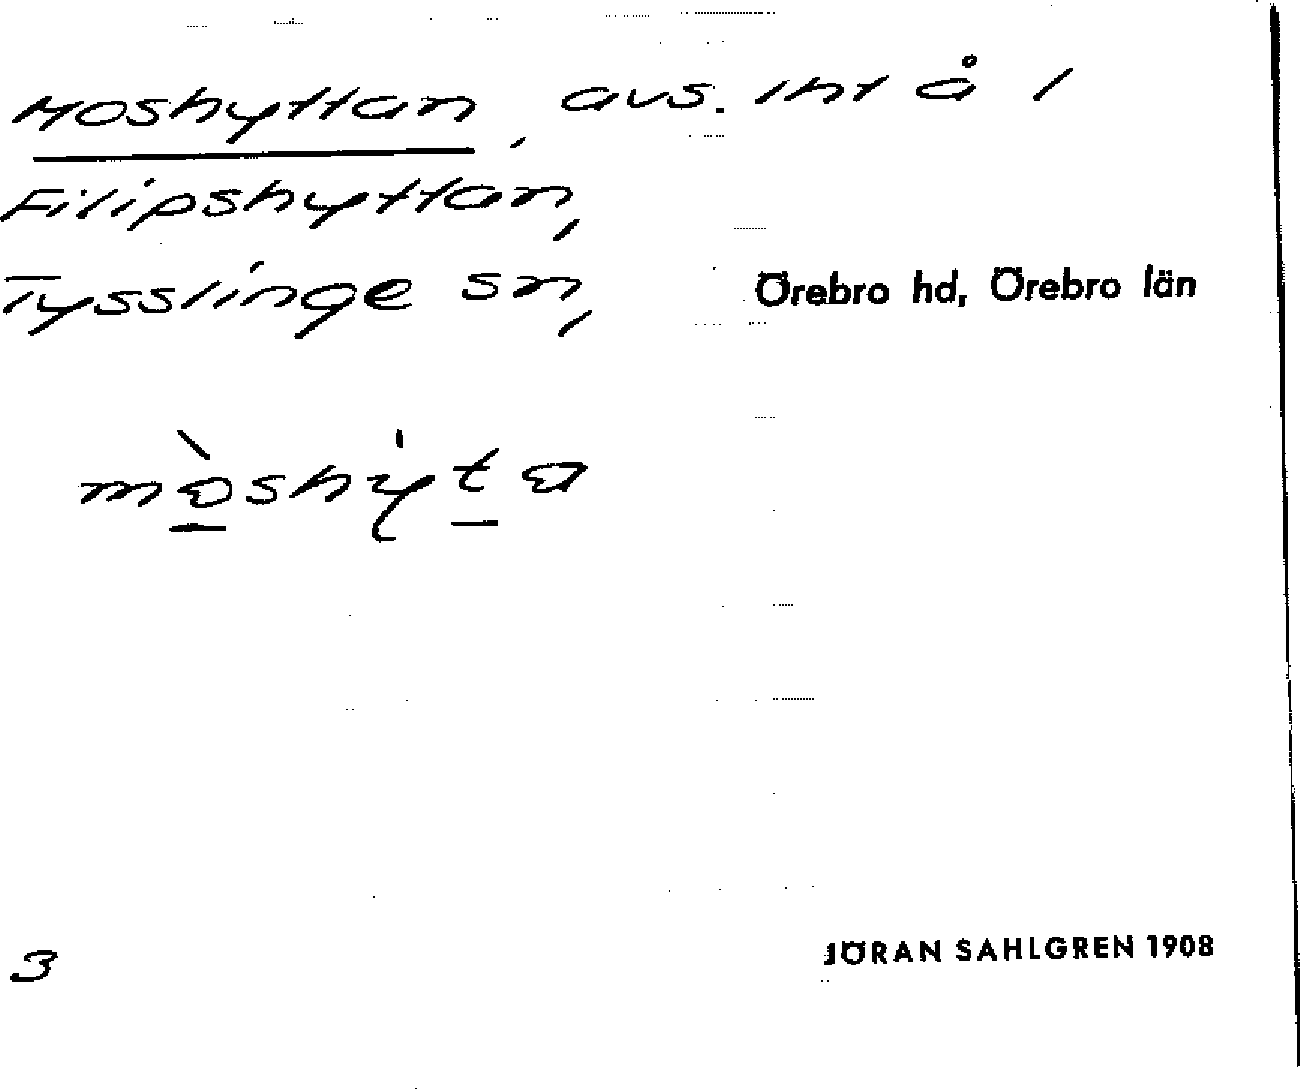 Moshyttan, avs. int å 1
Filipshyttan,
Tysslinge sn, Örebro hd, Örebro län
3
JÖRAN SAHLGREN 1908